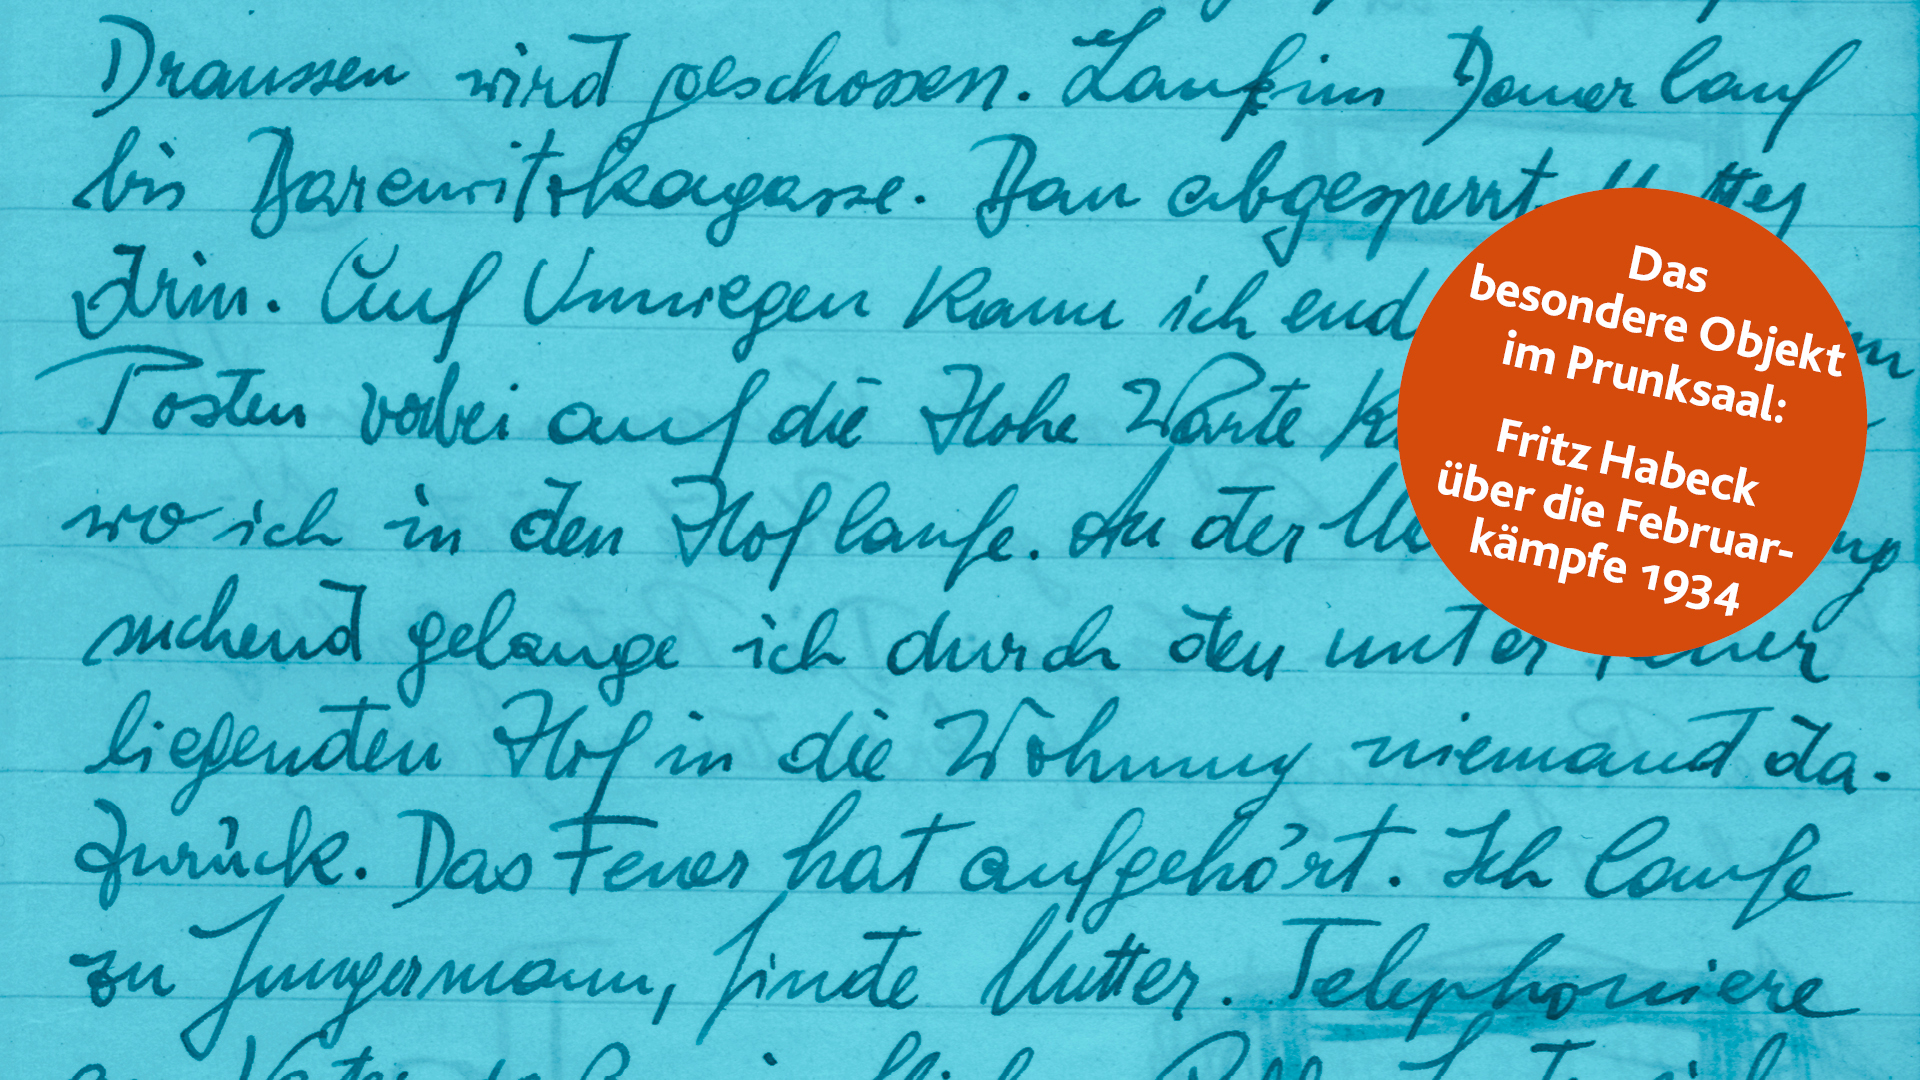 Draussen wird geschossen. Lauf im Dauerlauf
bis Barawitzkagasse. Bau abgesperrt. Mutter
drin. Auf Umwegen kann ich
Posten vorbei auf die Hohe Warte
wo ich in den Hof laufe. An der
suchend gelange ich durch den unter Feuer
liegenden Hof in die Wohnung niemand da.
Zurück. Das Feuer hat aufgehört. Ich laufe
zu Jungermann, finde Mutter. Telephoniere
Das
besondere Objekt
im Prunksaal:
Fritz Habeck
über die Februar-
kämpfe 1934